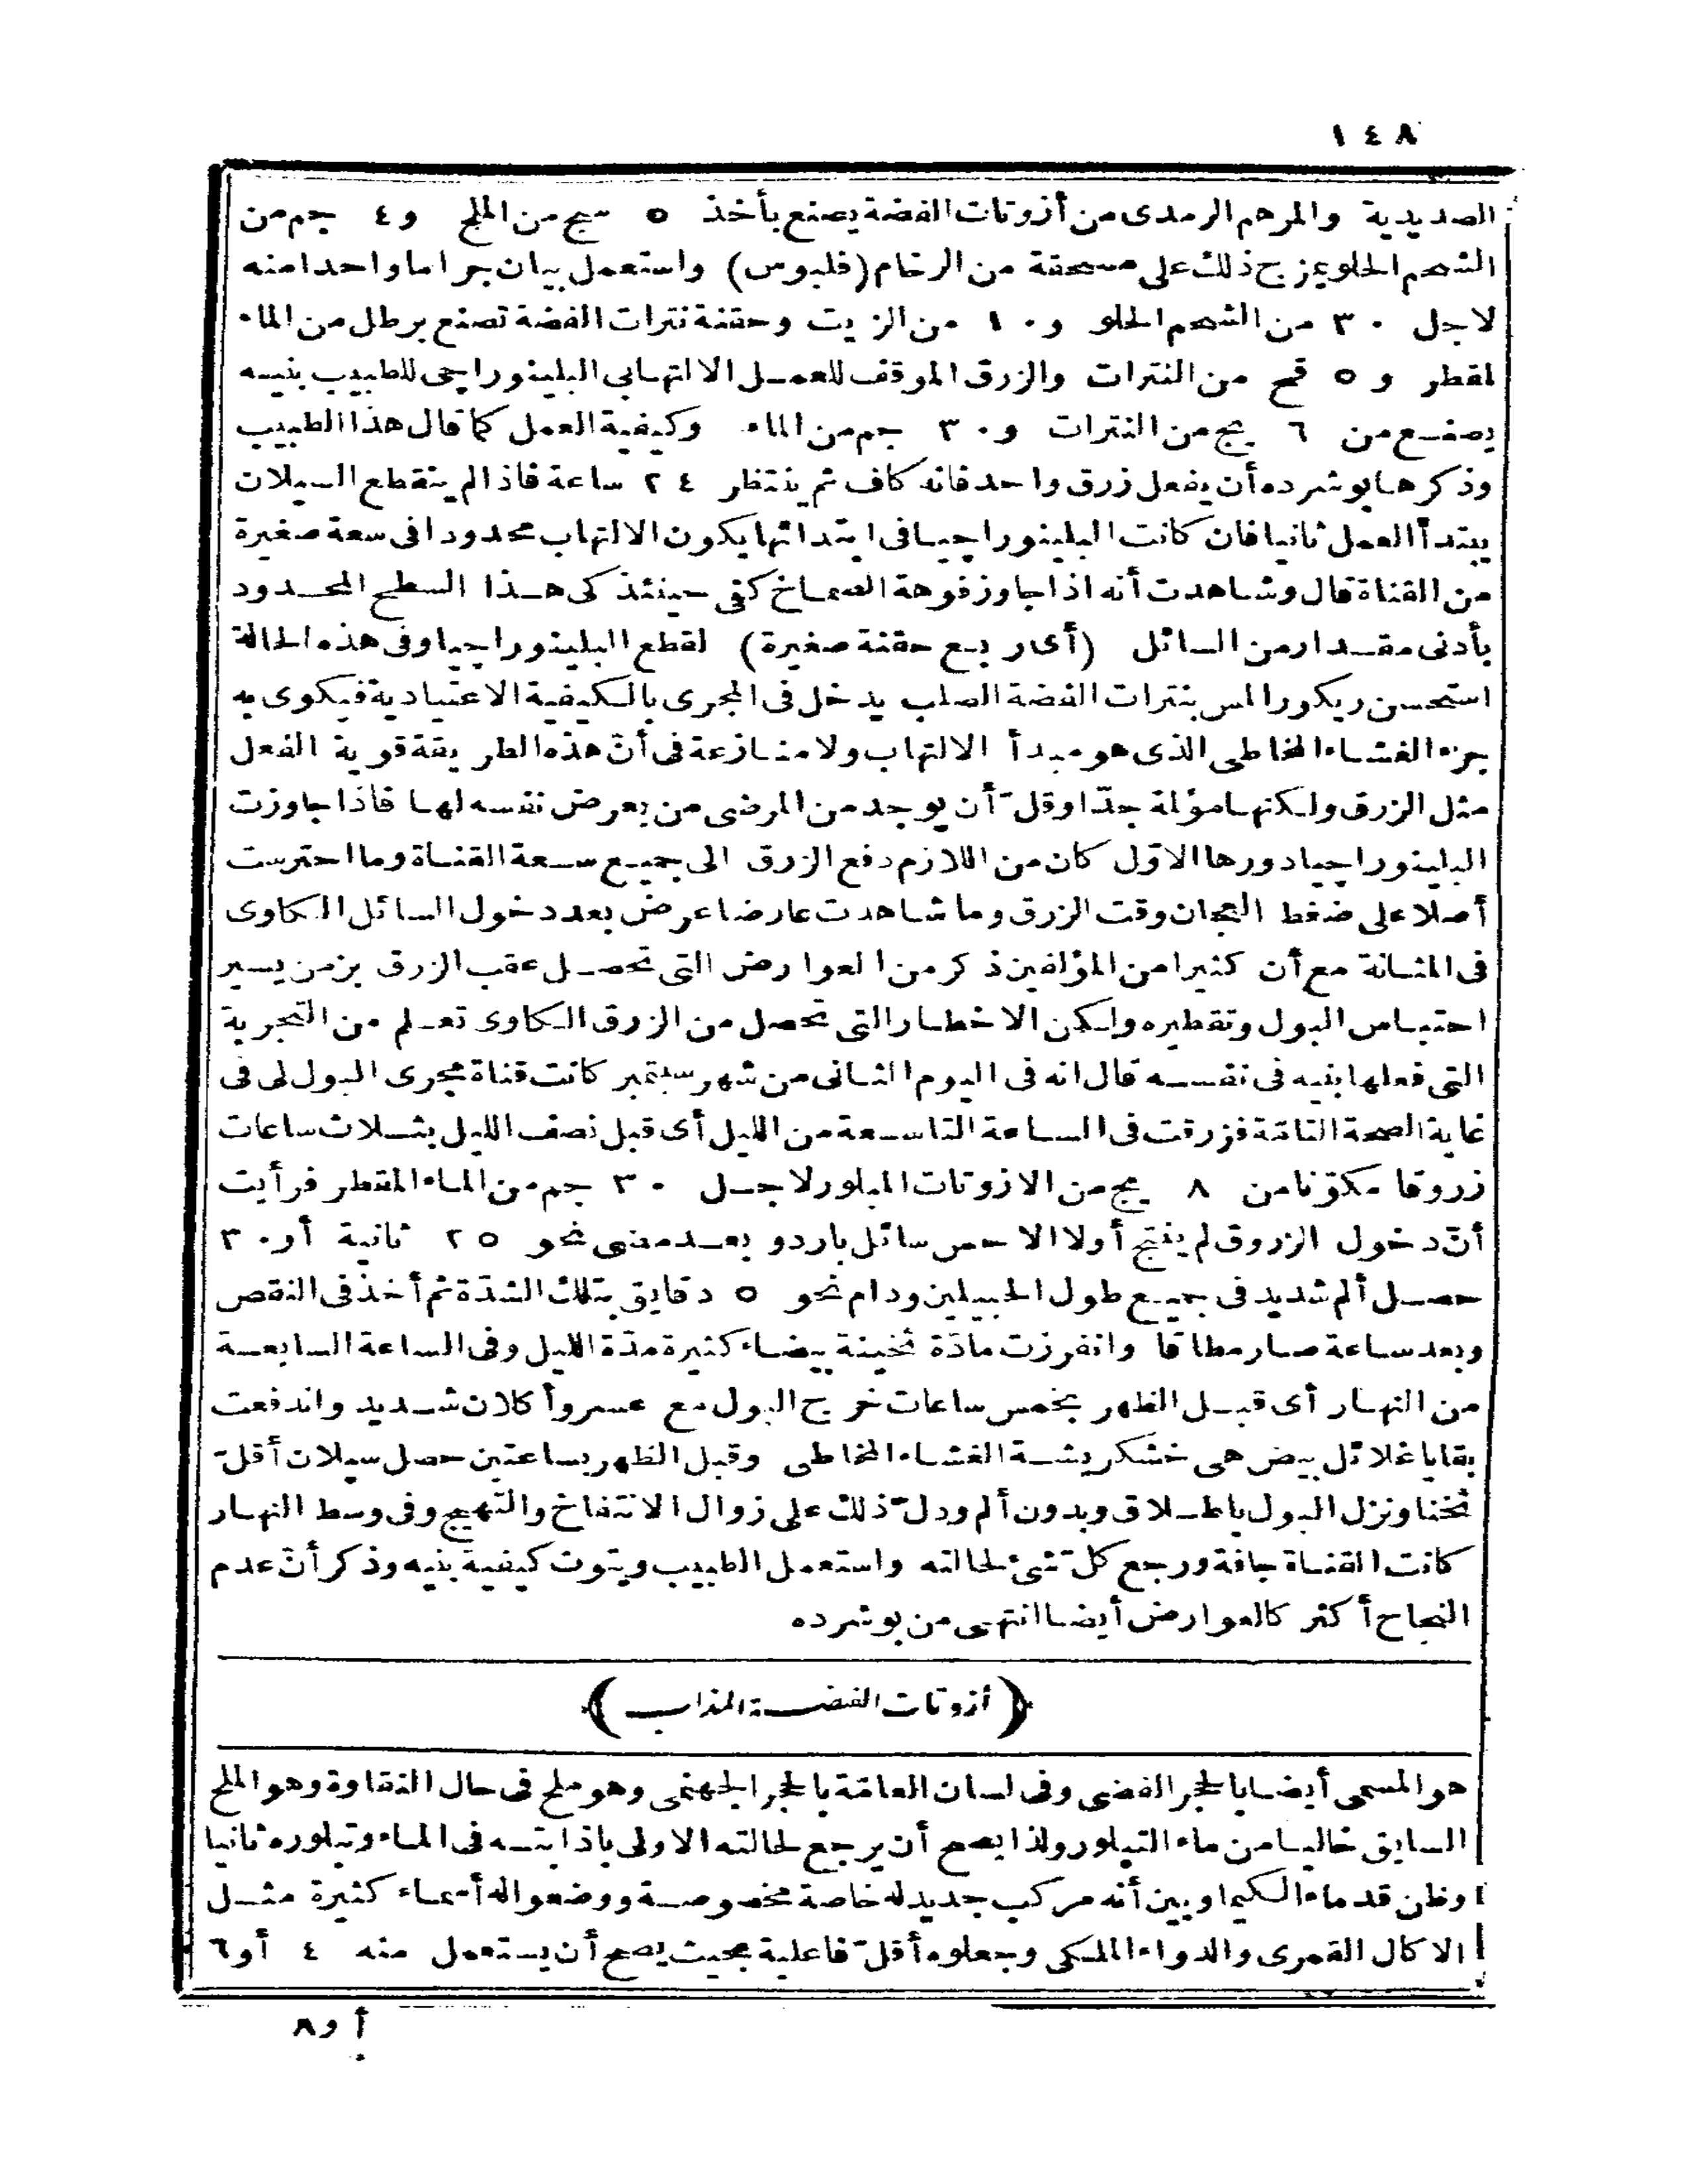 ١٤٨
الصديدية والمرهم الرمدى من أزوتات الفضة يصنع بأخذ ٥ سج من الملح و٤ جم من
الشحم الحلو يمزج ذلك على مسحقة من الرخام (فلبوس) واستعمل بيان جراما واحدا منه
لاجل ٣٠ من الشحم الحلو و١٠ من الزيت وحقنة نترات الفضة تصنع برطل من الماء
لمقطر و ٥ قمح من النترات والزرق الموقف للعمل الالتهابى البلينوراجى للطبيب بنيه
يصنع من ٦ مج من النترات و٣٠ جم من الماء وكيفية العمل كما قال هذا الطبيب
وذكرها بوشرده أن يفعل زرق واحد فانه كاف ثم ينتظر ٢٤ ساعة فاذا لم ينقطع السيلان
يبتدأ العمل ثانيا فان كانت البلينوراجيا فى ابتدائها يكون الالتهاب محدودا فى سعة صغيرة
من القناة قال وشاهدت أنه اذا جاوز فوهة الصماخ كفى حينئذ كى هذا السطح المحدود
بأدنى مقدار من السائل (أى ربع حقنة صغيرة) لقطع البلينوراجيا وفى هذه الحالة
استحسن ريكور المس بنترات الفضة الصلب يدخل فى المجرى بالكيفية الاعتيادية فيكوى به
جزء الغشاء المخاطى الذى هو مبدأ الالتهاب ولا منازعة فى أنّ هذه الطريقة قوية الفعل
مثل الزرق ولكنها مؤلمة جدّا وقلّ أن يوجد من المرضى من يعرض نفسه لها فاذا جاوزت
البلينوراجيا دورها الاوّل كان من اللازم دفع الزرق الى جميع سعة القناة وما احترست
أصلا على ضغط العجان وقت الزرق وما شاهدت عارضا عرض بعد دخول السائل الكاوى
فى المثانة مع أن كثيرا من المؤلفين ذكر من العوارض التى تحصل عقب الزرق بزمن يسير
احتباس البول وتقطيره ولكن الاخطار التى تحصل من الزرق الكاوى تعلم من التجربة
التى فعلها بنيه فى نفسه قال انه فى اليوم الثانى من شهر سبتمبر كانت قناة مجرى البول لى فى
غاية الصحة التامّة فزرقت فى الساعة التاسعة من الليل أى قبل نصف الليل بثلاث ساعات
زروقا مكوّنا من ٨ مج من الازوتات المبلور لاجل ٣٠ جم من الماء المقطر فرأيت
أنّ دخول الزروق لم ينتج أولا الا حس سائل بارد وبعد مضى نحو ٢٥ ثانية أو ٣٠
حصل ألم شديد فى جميع طول الحبيلين ودام نحو ٥ دقايق بتلك الشدّة ثم أخذ فى النقص
وبعد ساعة صار مطاقا وانفرزت مادّة ثخينة بيضاء كثيرة مدّة الليل وفى الساعة السابعة
من النهار أى قبل الظهر بخمس ساعات خرج البول مع عسر وأكلان شديد واندفعت
بقايا غلائل بيض هى خشكريشة الغشاء المخاطى وقبل الظهر بساعتين حصل سيلان أقلّ
ثخنا ونزل البول باطلاق وبدون ألم ودلّ ذلك على زوال الانتفاخ والتهيج وفى وسط النهار
كانت القناة جافة ورجع كلّ شئ لحالته واستعمل الطبيب ويتوت كيفية بنيه وذكر أنّ عدم
النجاح أكثر كالعوارض أيضا انتهى من بوشرده
(أزوتات الفضة المذاب)
هو المسمى أيضا بالحجر الفضى وفى لسان العامّة بالحجر الجهنمى وهو ملح فى حال النقاوة وهو الملح
السابق خاليا من ماء التبلور ولذا يصح أن يرجع لحالته الاولى باذابته فى الماء وتبلوره ثانيا
وظن قدماء الكيماويين أنه مركب جديد له خاصة مخصوصة ووضعوا له أسماء كثيرة مثل
الاكال القمرى والدواء الملكى وجعلوه أقلّ فاعلية بحيث يصح أن يستعمل منه ٤ أو ٦
أو ٨